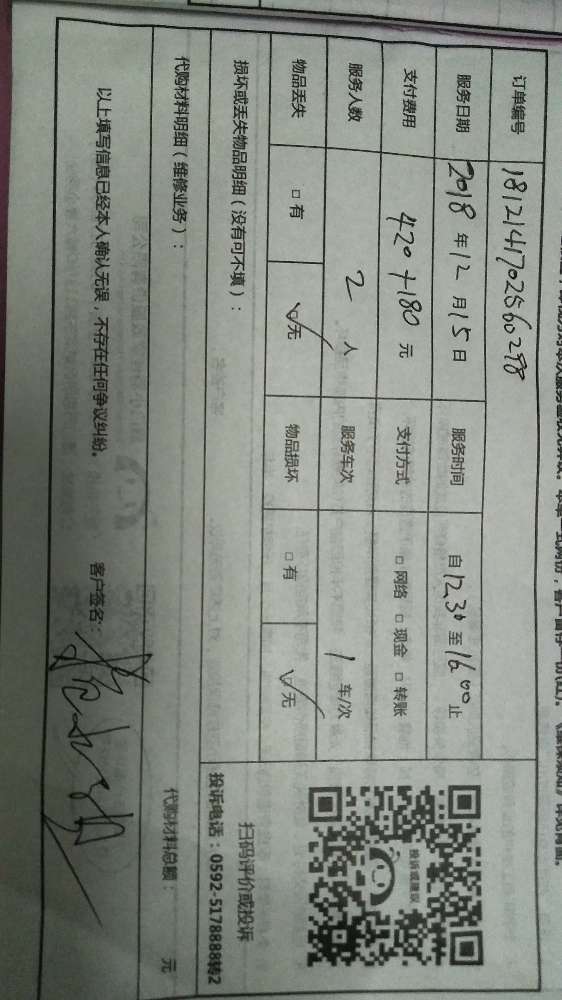 订单编号 1812141702560298
服务日期 2018 年 12 月 15 日 服务时间 自 12.30 至 16.00 止
支付费用 420+180 元 支付方式 □ 网络 □ 现金 □ 转账
服务人数 2 人 服务车次 1 车/次
物品丢失 □ 有 ☑ 无 物品损坏 □ 有 ☑ 无
投诉或建议
扫码评价或投诉
投诉电话：0592-5178888转2
损坏或丢失物品明细（没有可不填）：
代购材料明细（维修业务）： 代购材料总额： 元
以上填写信息已经本人确认无误，不存在任何争议纠纷。 客户签名：